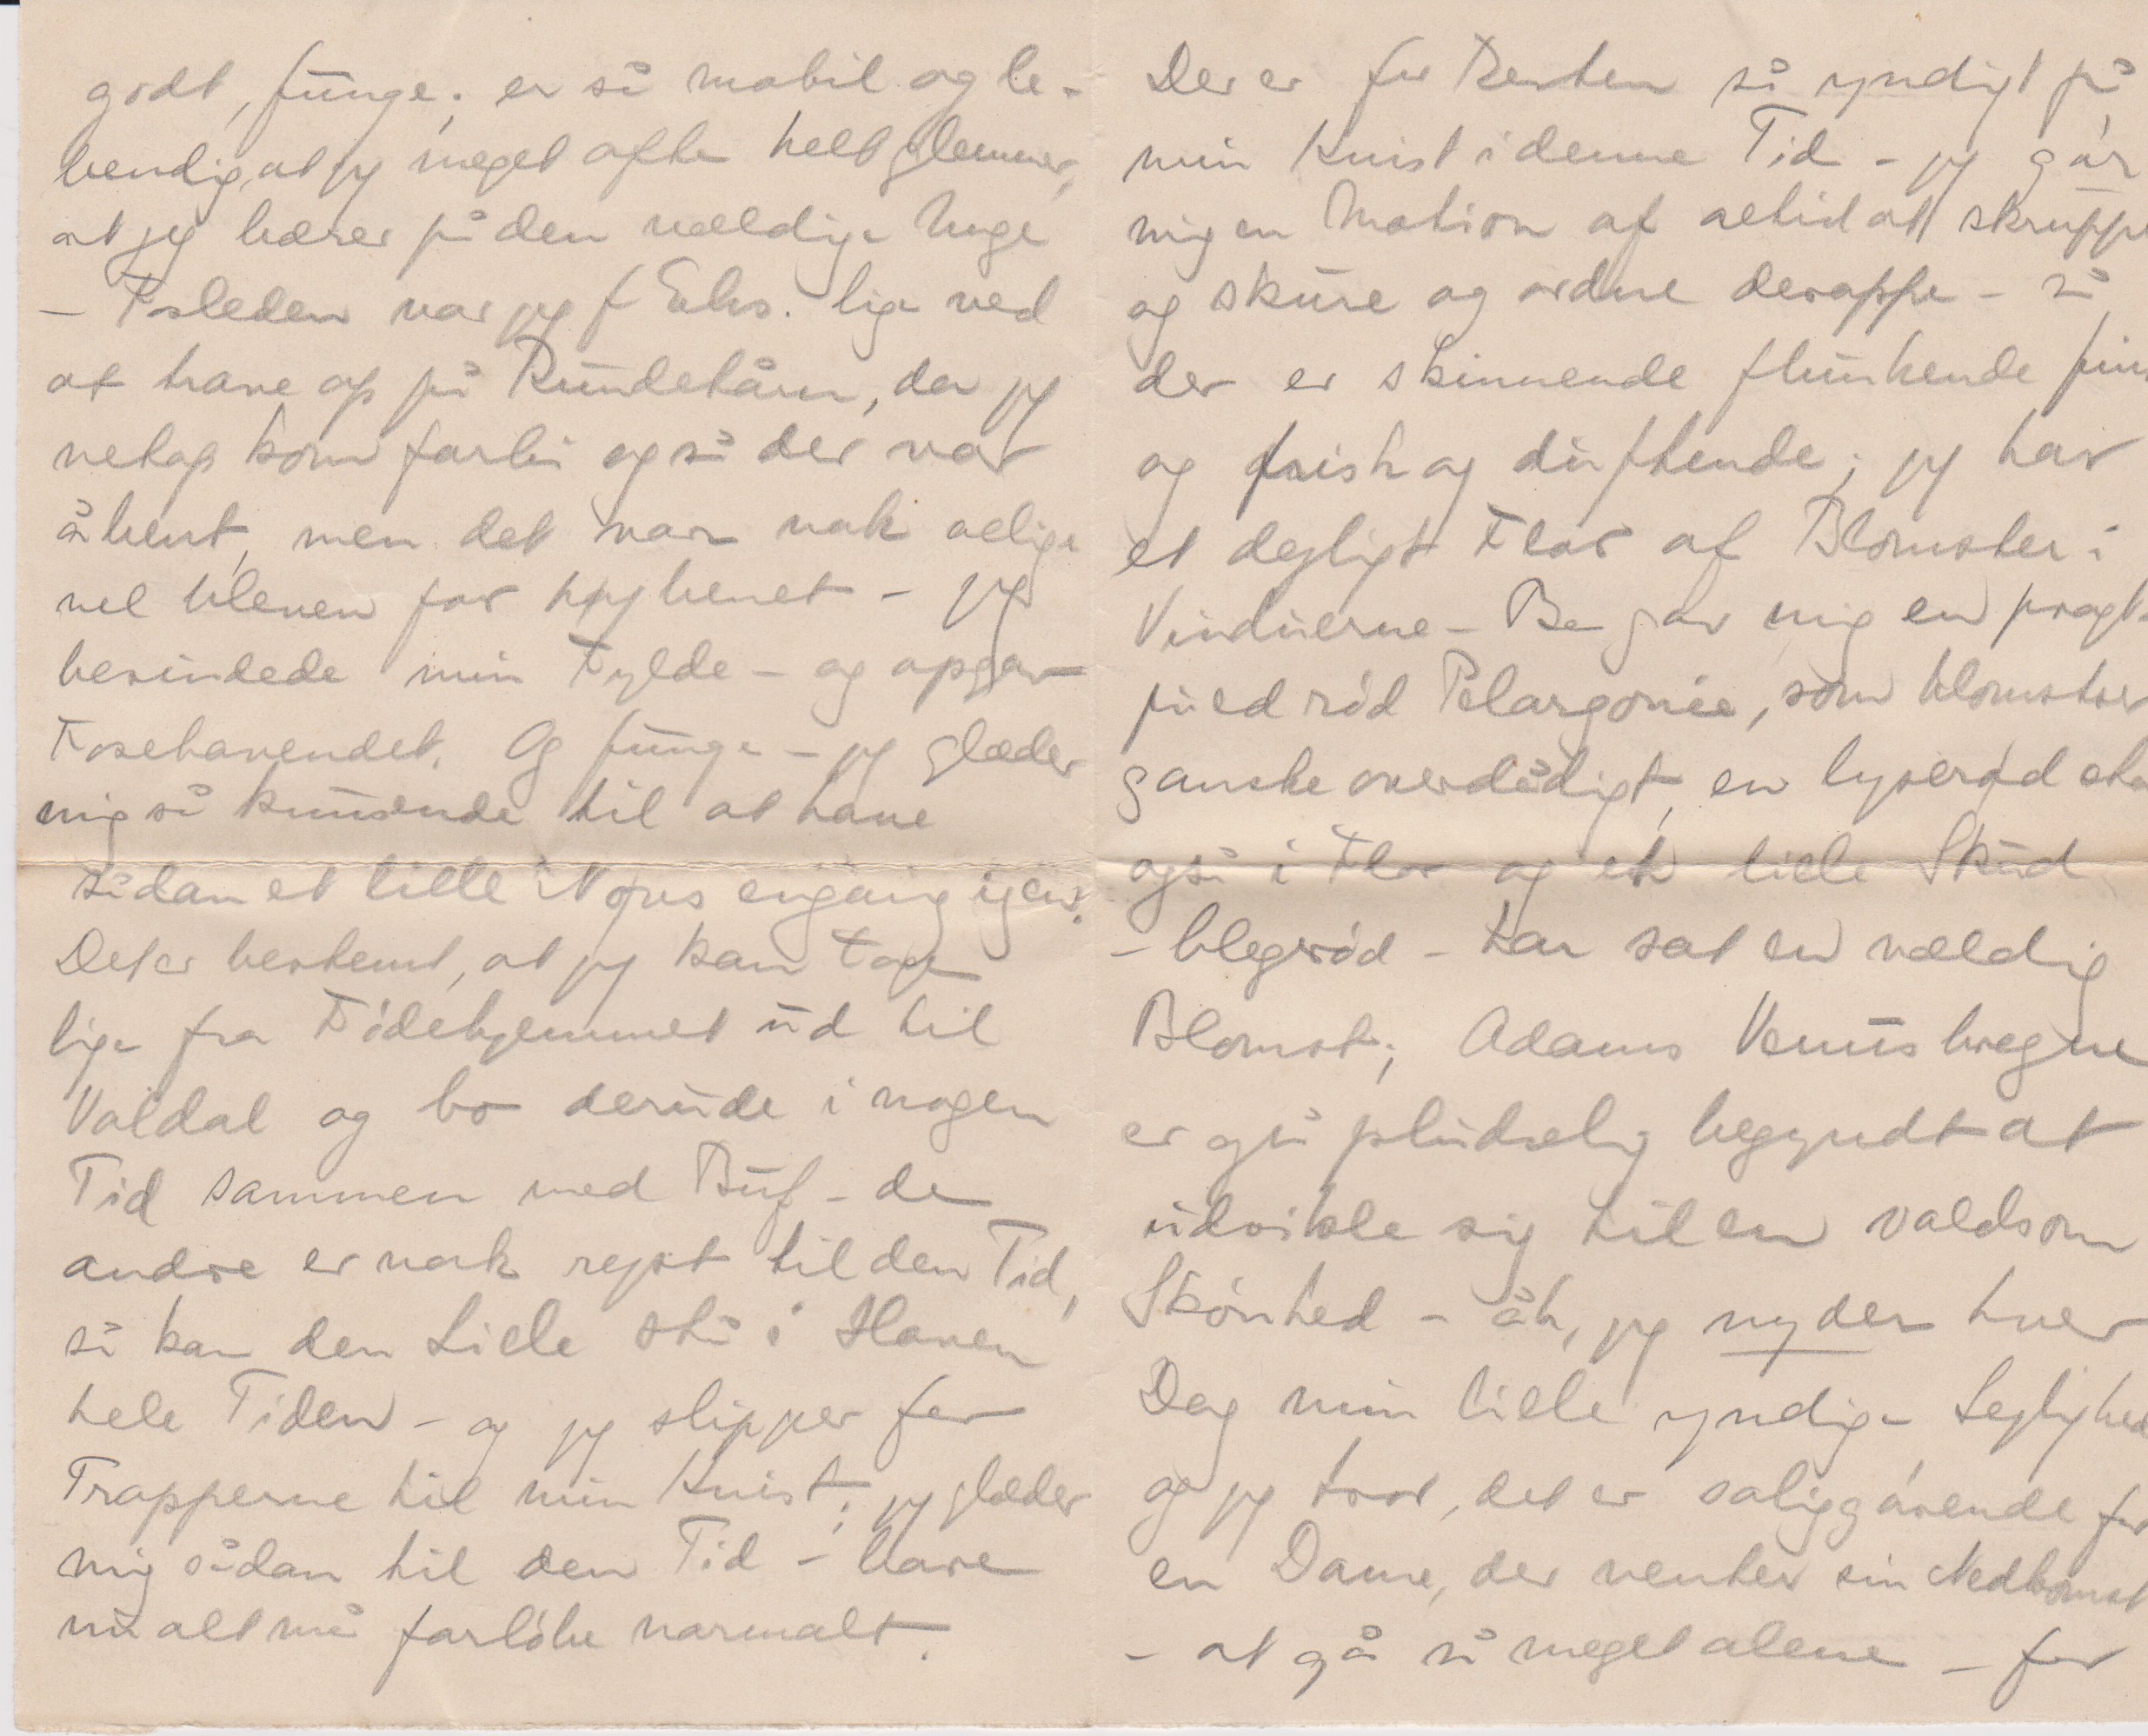 godt, Junge; er så mobil og le-
vendig, at jeg meget ofte helt glemmer,
at jeg bærer på den vældige Unge
– Forleden var jeg f Eks. lige ved
at trave op på Rundetårn, da jeg
netop kom forbi og så der var
åbent, men det var nok allige
vel bleven for høybenet – jeg
besindede min Fylde – og opgav
Foretavendet. Og Junge – jeg glæder
mig så knusende til at have
sådan et lille Nøjus engang igen.
Det er bestemt, at jeg kan tage
lige fra Fødehjemmet ud til
Valdal og bo derude i nogen
Tid sammen med Buf – de
andre er nok rejst til den Tid,
så kan den Lille stå i Haven
hele Tiden – og jeg slipper for
Trapperne til min Kvist; jeg glæder
mig sådan til den Tid – bare
nu alt må forløbe normalt.
Der er for Resten så yndigt på
min Kvist i denne Tid – jeg gør
mig en Motion af altid at skruppe
og skure og ordne deroppe – så
der er skinnende flunkende fint
og frisk og duftende; jeg har
et dejligt Flor af Blomster i
Vinduerne – Be gav mig en pragt-
fuld rød Pelargonie, som blomstrer
ganske overdådigt, en lyserød står
også i Flor og et lille Skud
– blegrød – har sat en vældig
Blomst; Adams Venusbregne
er også pludselig begyndt at
udvikle sig til en voldsom
Skønhed – åh, jeg nyder hver
Dag min lille yndige Lejlighed
og jeg tror, det er saliggørende for
en Dame, der venter sin Nedkomst
– at gå så meget alene – for